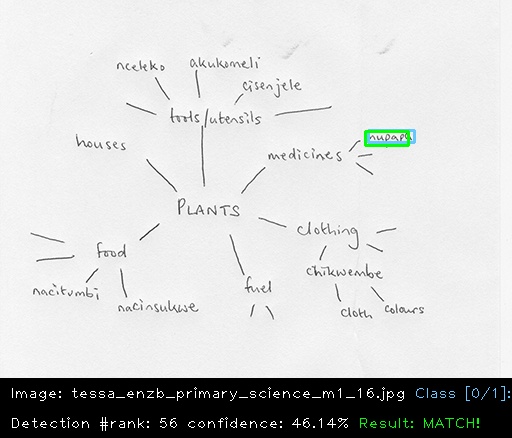 nceleko
akukomeli
cisenjele
tools/utensils
houses
medicines
mupapa
PLANTS
clothing
food
chikwembe
nacitumbi
fuel
nacinsukwe
cloth
colours
Image: tessa_enzb_primary_science_m1_16.jpg Class [0/1]:
Detection #rank: 56 confidence: 46.14% Result: MATCH!